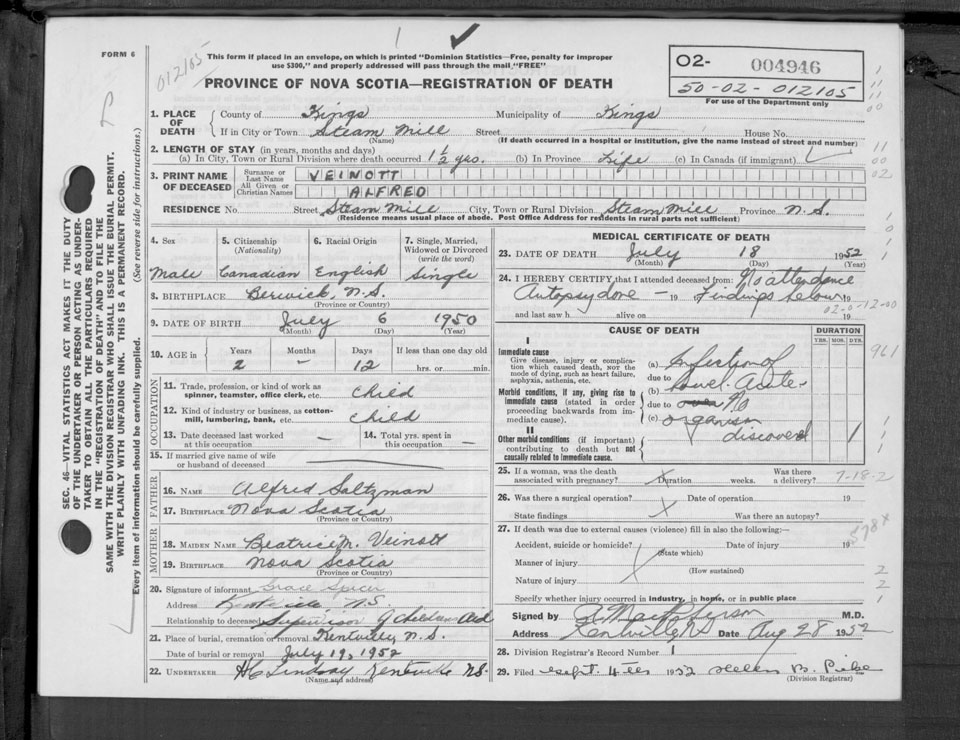 FORM 6
012105
This form if placed in an envelope, on which is printed "Dominion Statistics—Free, penalty for improper
use $300," and properly addressed will pass through the mail "FREE"
PROVINCE OF NOVA SCOTIA—REGISTRATION OF DEATH
O2- 004946
50-02-012105
For use of the Department only
SEC. 46—VITAL STATISTICS ACT MAKES IT THE DUTY
OF THE UNDERTAKER OR PERSON ACTING AS UNDER-
TAKER TO OBTAIN ALL THE PARTICULARS REQUIRED
IN THE "REGISTRATION OF DEATH" AND TO FILE THE
SAME WITH THE DIVISION REGISTRAR WHO SHALL ISSUE THE BURIAL PERMIT.
WRITE PLAINLY WITH UNFADING INK. THIS IS A PERMANENT RECORD.
Every item of information should be carefully supplied. (See reverse side for instructions.)
1. PLACE OF DEATH
County of Kings Municipality of Kings
If in City or Town Steam Mill Street House No.
(Name) (If death occurred in a hospital or institution, give the name instead of street and number)
2. LENGTH OF STAY (in years, months and days)
(a) In City, Town or Rural Division where death occurred 1 1/2 yrs. (b) In Province Life (c) In Canada (if immigrant)
3. PRINT NAME OF DECEASED
Surname or Last Name VEINOTT
All Given or Christian Names ALFRED
RESIDENCE No. Street Steam Mill City, Town or Rural Division Steam Mill Province N.S.
(Residence means usual place of abode. Post Office Address for residents in rural parts not sufficient)
4. Sex 5. Citizenship (Nationality) 6. Racial Origin 7. Single, Married, Widowed or Divorced (write the word)
Male Canadian English Single
8. BIRTHPLACE Berwick, N.S.
(Province or Country)
9. DATE OF BIRTH July 6 1950
(Month) (Day) (Year)
10. AGE in Years Months Days If less than one day old
2 - 12 hrs. or min.
OCCUPATION
11. Trade, profession, or kind of work as
spinner, teamster, office clerk, etc. child
12. Kind of industry or business, as cotton-
mill, lumbering, bank, etc. child
13. Date deceased last worked at this occupation — 14. Total yrs. spent in this occupation —
15. If married give name of wife
or husband of deceased
FATHER
16. NAME Alfred Saltzman
17. BIRTHPLACE Nova Scotia
(Province or Country)
MOTHER
18. MAIDEN NAME Beatrice M. Veinott
19. BIRTHPLACE Nova Scotia
(Province or Country)
20. Signature of informant Grace Spicer
Address Kentville, N.S.
Relationship to deceased Supervisor of Children Aid
21. Place of burial, cremation or removal Kentville, N.S.
Date of burial or removal July 19, 1952
22. UNDERTAKER H C Lindsay Kentville N.S.
(Name and address)
MEDICAL CERTIFICATE OF DEATH
23. DATE OF DEATH July 18 1952
(Month) (Day) (Year)
24. I HEREBY CERTIFY, that I attended deceased from: No attendance
Autopsy done — 19 Findings below 19
and last saw h alive on 19
02-0 -12-00
CAUSE OF DEATH DURATION
YRS. MOS. DYS.
I
Immediate cause
Give disease, injury or complica-
tion which caused death, NOT the
mode of dying, such as heart failure,
asphyxia, asthenia, etc.
(a) Infection of
due to bowel. Acute
Morbid conditions, if any, giving rise to
immediate cause (stated in order
proceeding backwards from im-
mediate cause).
(b)
due to No
(c) organism
II
discovered 1
Other morbid conditions (if important)
contributing to death but not
causally related to immediate cause.
961
25. If a woman, was the death Was there
associated with pregnancy? X Duration weeks. a delivery?
7-18-2
26. Was there a surgical operation? Date of operation 19
State findings X Was there an autopsy?
27. If death was due to external causes (violence) fill in also the following:—
Accident, suicide or homicide? Date of injury 19
(State which)
Manner of injury
(How sustained)
Nature of injury
Specify whether injury occurred in industry, in home, or in public place
Signed by M.D.
Address Kentville Date Aug 28 1952
28. Division Registrar's Record Number 1
29. Filed Sept. 4th 1952 Helen B.
(Division Registrar)